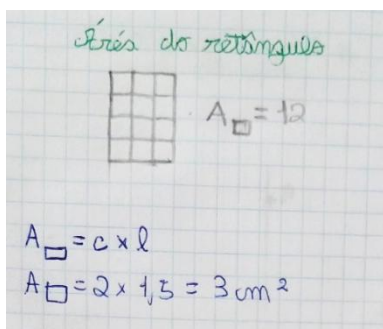 Área do retângulo
A▭ = 12
A▭ = c x l
A▭ = 2 x 1,5 = 3 cm²